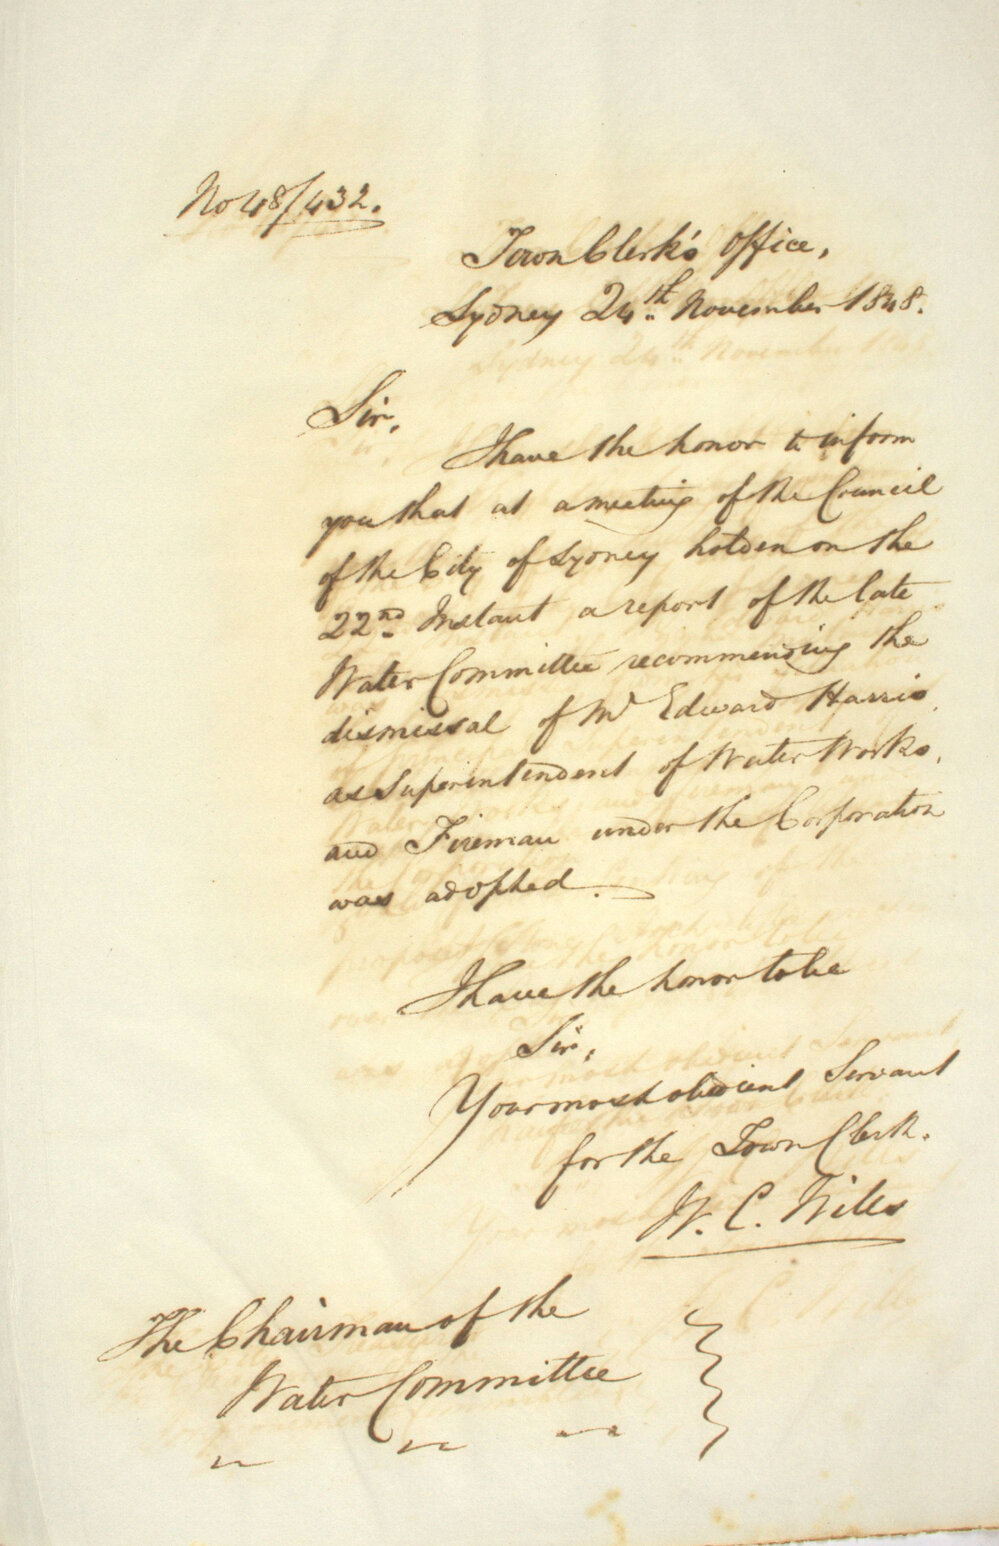 No 48/432.
Town Clerk's Office,
Sydney 24th November 1848.
Sir,
I have the honor to inform
you that at a meeting of the Council
of the City of Sydney holden on the
22nd Instant a report of the late
Water Committee recommending the
dismissal of Mr Edward Harris
as Superintendent of Water Works,
and Fireman under the Corporation
was adopted.
I have the honor to be
Sir,
Your most obedient Servant
for the Town Clerk.
W. C. Wills
The Chairman of the
Water Committee
" " "